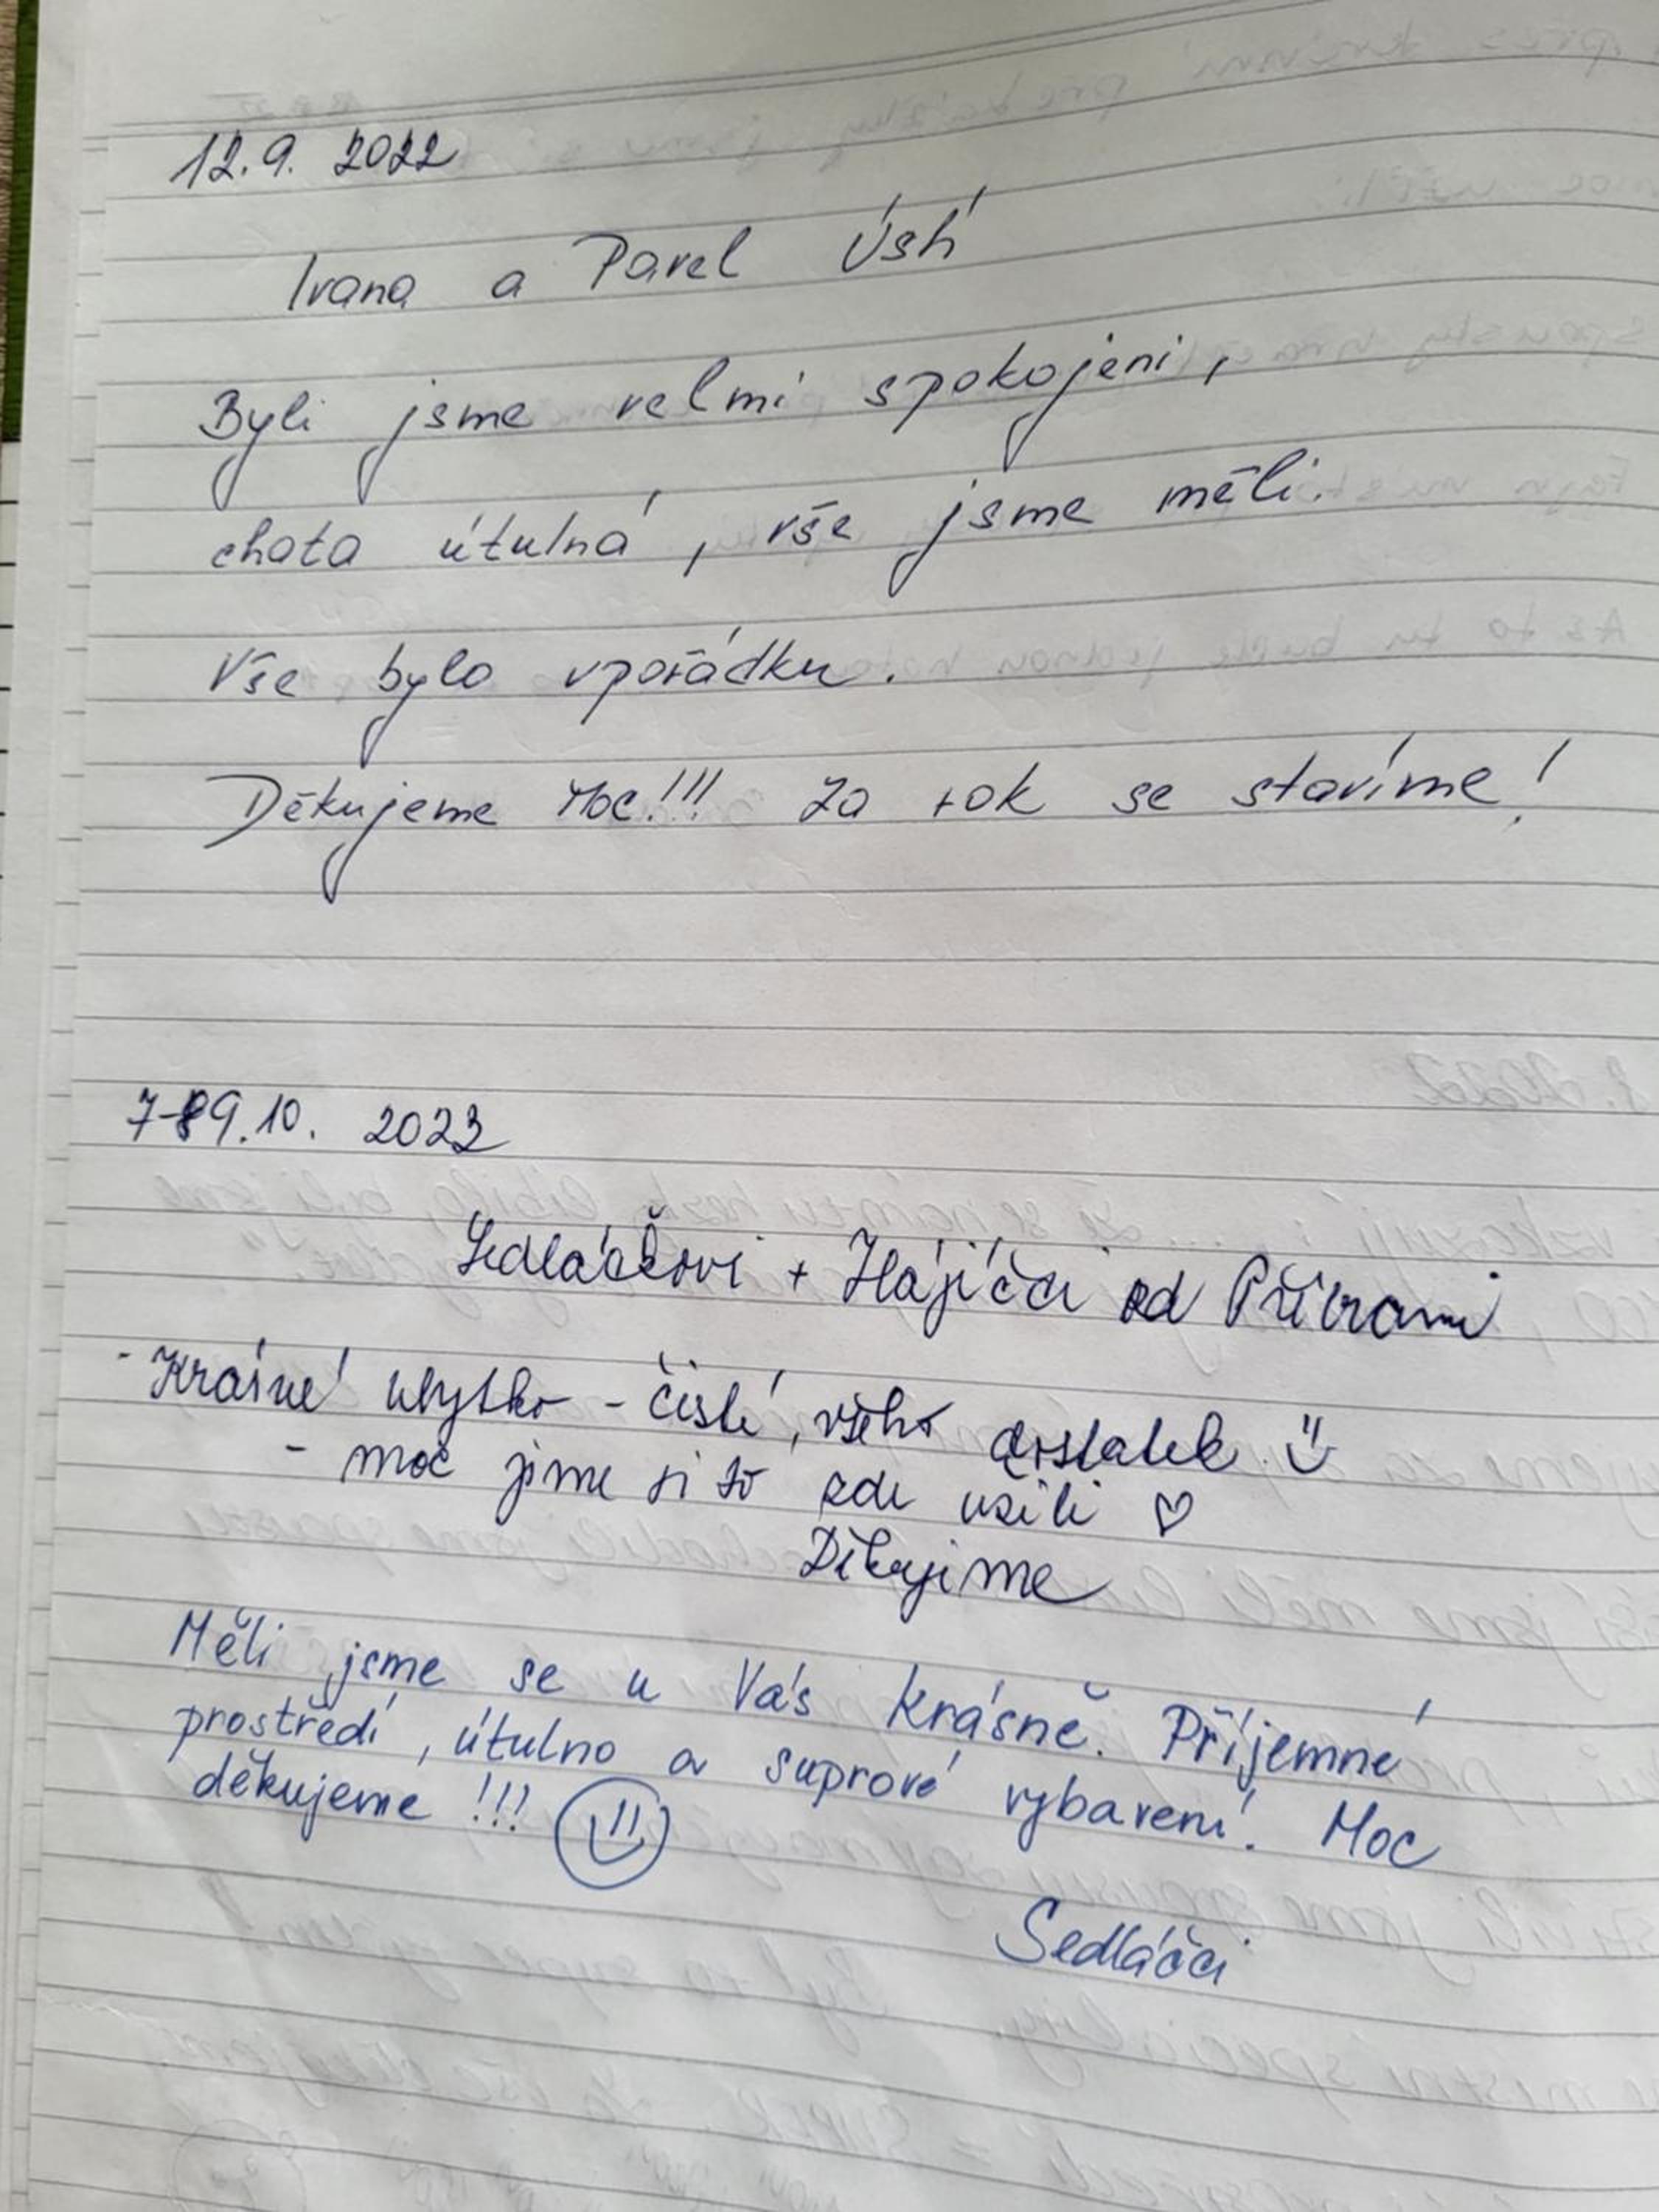 12.9. 2022
Ivana a Pavel Ústí
Byli jsme velmi spokojeni,
chata útulná, vše jsme měli.
Vše bylo vpořádku.
Děkujeme Moc!!! Za rok se stavíme!
7-9.10. 2022
Sedláčkovi + Hájíčci od Příbrami
- Krásné ubytko - čisté, všeho dostatek
- moc jsme si to zde užili ♡
Děkujeme
Měli jsme se u Vás krásně. Příjemné
prostředí, útulno a suprové vybavení. Moc
děkujeme !!!
Sedláčci